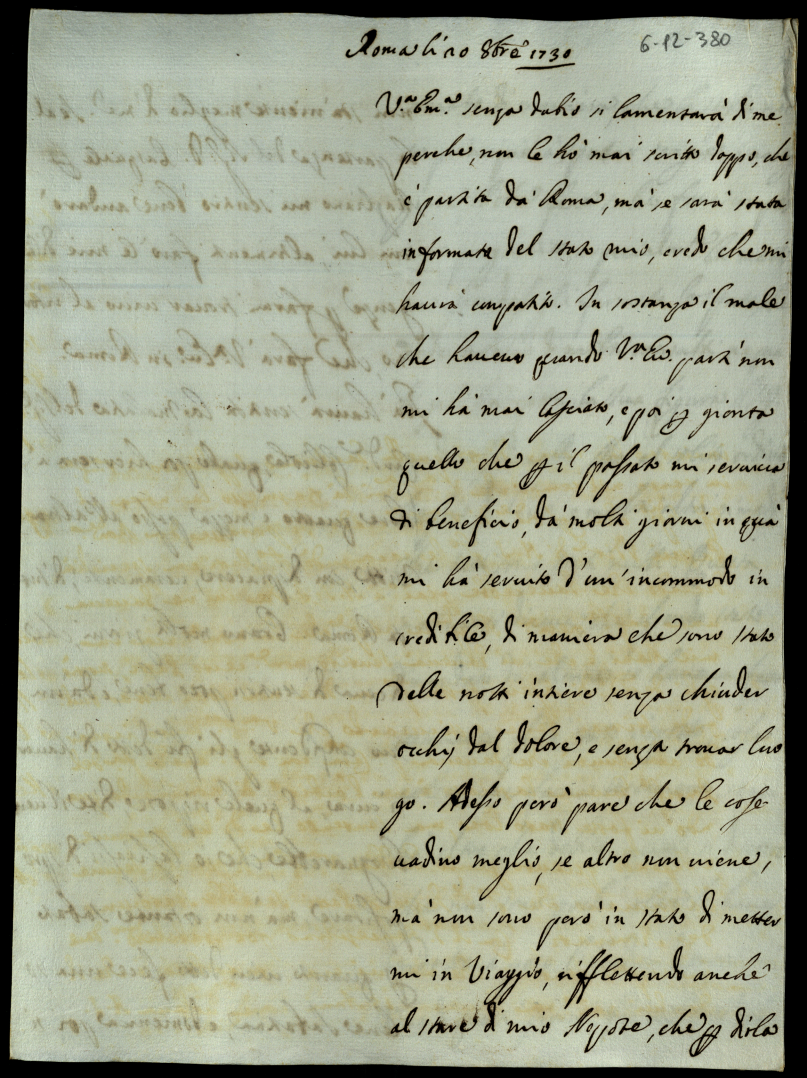 Roma li 20 8bre 1730
6-12-380
V.ra Em.za senza dubio si lamentarà di me
perche, non le hò mai scritto doppo, che
è partita dà Roma, mà se sarà stata
informata del stato mio, credo che mi
haurà compatito. In sostanza il male
che haueuo quando V.ra Em. partì non
mi hà mai lasciato, e poi p gionta
quello che p il passato mi seruiua
di beneficio, dà molti giorni in quà
mi hà seruito d'un' incommodo in
credibile, di maniera che sono stato
delle notti intiere senza chiuder
occhij dal dolore, e senza trouar luo
go. Adesso però pare che le cose
uadino meglio, se altro non uiene,
mà non sono però in stato di metter
mi in Viaggio, rifflettendo anche
al stare di mio Nepote, che p dirla